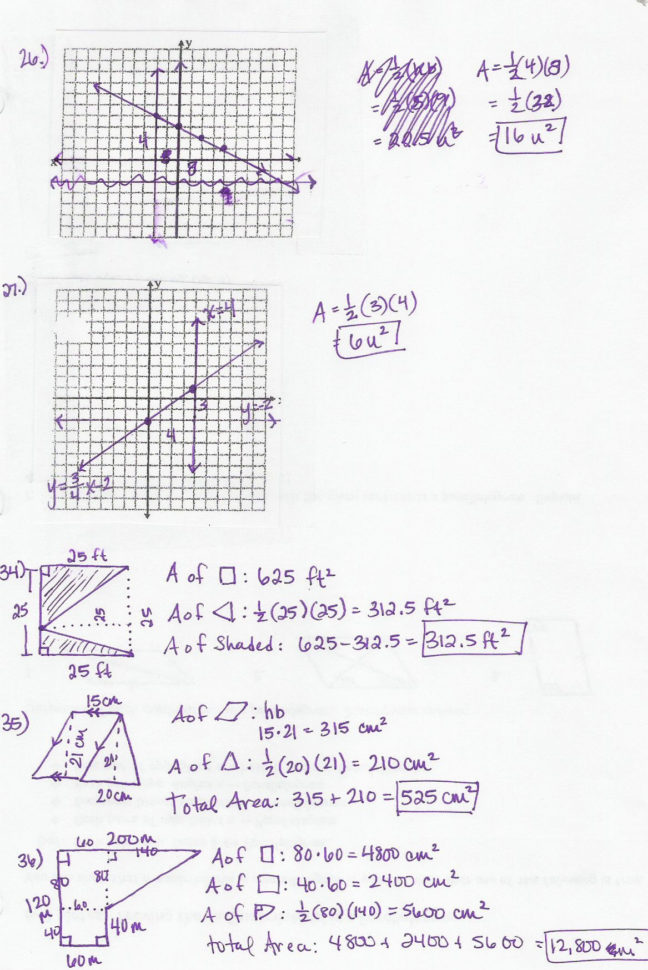 26.)
y
4
8
A = ½(4)(8)
= ½(32)
= 16 u²
27.)
y
x=4
3
y=-2
4
y=¾x-2
A = ½(3)(4)
= 6u²
34)
25 ft
25
25
25
25 ft
A of □: 625 ft²
A of ◁: ½(25)(25) = 312.5 ft²
A of Shaded: 625-312.5 = 312.5 ft²
35)
15cm
21cm
21
20cm
A of ▱: hb
15·21 = 315 cm²
A of △: ½(20)(21) = 210 cm²
Total Area: 315 + 210 = 525 cm²
36)
60 200m
140
80
80
120 m
60
40
40m
60m
A of □: 80·60 = 4800 cm²
A of □: 40·60 = 2400 cm²
A of ▷: ½(80)(140) = 5600 cm²
total Area: 4800 + 2400 + 5600 = 12,800 m²